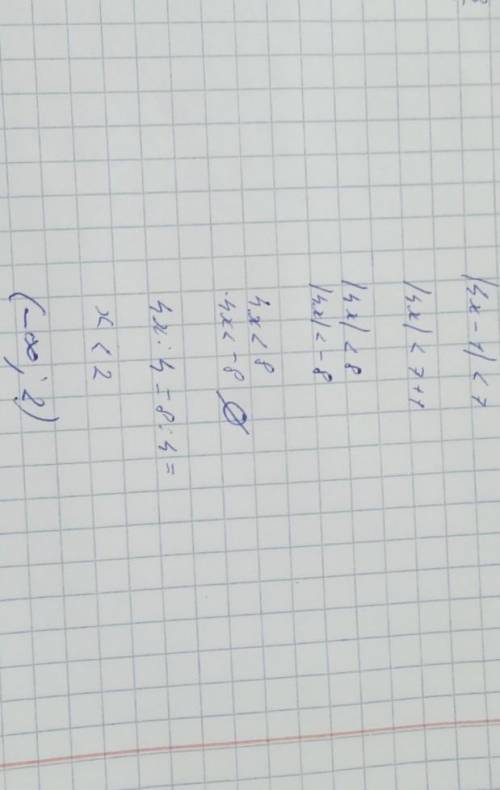 |4x - 1| < 7
|4x| < 7+1
|4x| < 8
|4x| < -8
4x < 8
4x < -8 ∅
4x : 4 = 8 : 4 =
x < 2
(-∞; 2)